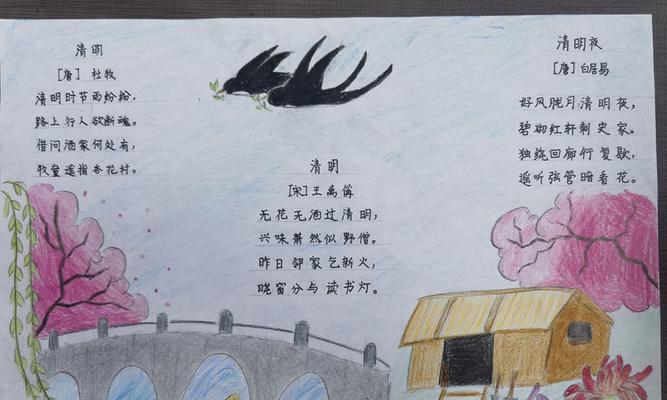 清明
[唐] 杜牧
清明时节雨纷纷，
路上行人欲断魂。
借问酒家何处有，
牧童遥指杏花村。
清明
[宋] 王禹偁
无花无酒过清明，
兴味萧然似野僧。
昨日邻家乞新火，
晓窗分与读书灯。
清明夜
[唐] 白居易
好风胧月清明夜，
碧砌红轩刺史家。
独绕回廊行复歇，
遥听弦管暗看花。